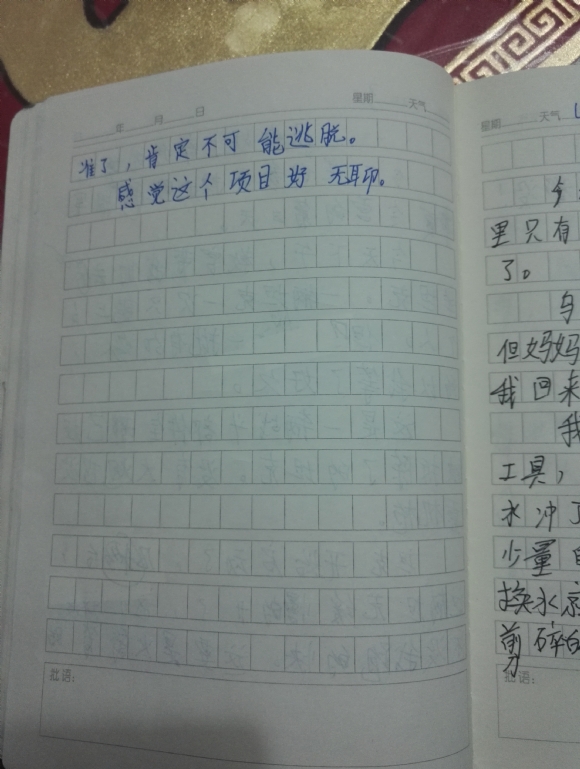 年 月 日 星期 天气
准了，肯定不可能逃脱。
感觉这个项目好无聊。
批语：
星期 天气
今
里只有
了。
乌
但妈妈
我回来
我
工具，
水冲了
少量
换水
剪碎的
批语：